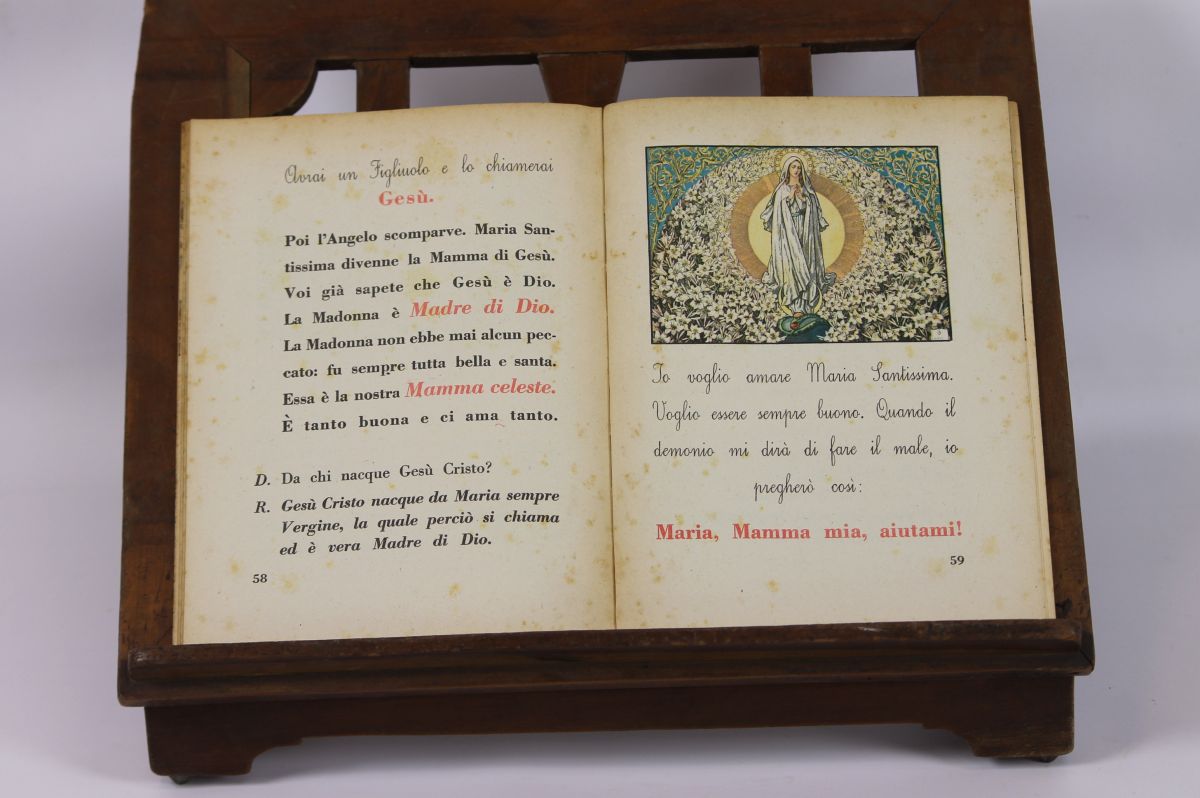 Avrai un Figliuolo e lo chiamerai
Gesù.
Poi l'Angelo scomparve. Maria San-
tissima divenne la Mamma di Gesù.
Voi già sapete che Gesù è Dio.
La Madonna è Madre di Dio.
La Madonna non ebbe mai alcun pec-
cato: fu sempre tutta bella e santa.
Essa è la nostra Mamma celeste.
È tanto buona e ci ama tanto.
D. Da chi nacque Gesù Cristo?
R. Gesù Cristo nacque da Maria sempre
Vergine, la quale perciò si chiama
ed è vera Madre di Dio.
58
Io voglio amare Maria Santissima.
Voglio essere sempre buono. Quando il
demonio mi dirà di fare il male, io
pregherò così:
Maria, Mamma mia, aiutami!
59